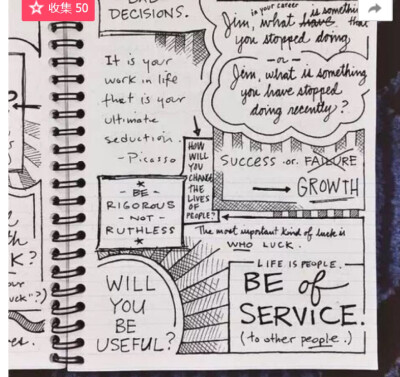 收集 50
DECISIONS.
in your career
is somethi
Jim, what have that
you stopped doing
-or-
Jim, what is something
you have stopped
doing recently?
It is your
work in life
that is your
ultimate
seduction.
-Picasso
HOW
WILL
YOU
CHANGE
THE
LIVES
OF
PEOPLE?
SUCCESS -or- FAILURE
GROWTH
- BE -
RIGOROUS
- NOT -
RUTHLESS
The most important kind of luck is
WHO LUCK.
K?
uck"?)
es.
WILL
YOU
BE
USEFUL?
LIFE IS PEOPLE.
BE of
SERVICE.
(to other people.)